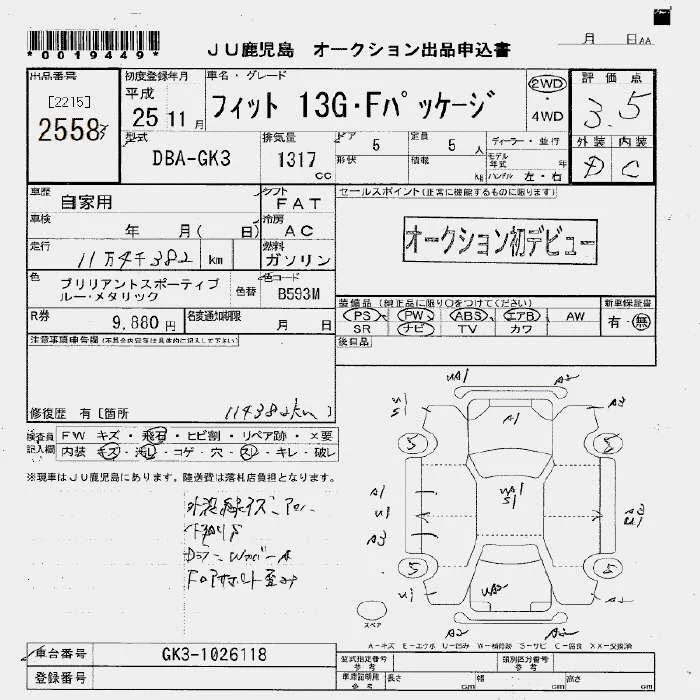 *0019449*
JU鹿児島 オークション出品申込書
月 日AA
出品番号 初度登録年月 車名・グレード 評価点
[2215] 平成 フィット 13G・Fパッケージ 2WD・4WD 3.5
2558 25 11月
型式 排気量 ドア 5 定員 5人 ディーラー・並行 外装 内装
DBA-GK3 1317cc 形状 積載 kg モデル年式 年 D C
ハンドル 左・右
車歴 自家用 シフト FAT セールスポイント(正常に機能するものに限ります)
車検 年 月( 日) 冷房 AC オークション初デビュー
走行 11万4千382 km 燃料 ガソリン
色 ブリリアントスポーティブ 色替 色コード
ルー・メタリック B593M
装備品(純正品に限り○をつけてください) 新車保証書
R券 9,880円 名変通知期限 月 日 PS PW ABS エアB AW 有・無
SR ナビ TV カワ
注意事項申告欄(不具合内容等は具体的に記入して下さい) 後日品
修復歴 有[箇所 114382km]
検査員 FW キズ・飛石・ヒビ割・リペア跡・×要
記入欄 内装 キズ・汚レ・コゲ・穴・スレ・キレ・破レ
※現車はJU鹿児島にあります。陸送費は落札店負担となります。
UA1 A2
A1
A3
5 5
A1 UA1 S1
U1 A3
A3 U1
5 5
U1 A2
A2 A2
スペア
A-キズ E-エクボ U-凹み W-補修跡 S-サビ C-腐食 XX-交換済
車台番号 GK3-1026118 型式指定番号 参考 類別区分番号 参考
登録番号 車庫証明用 参考 長さ cm 幅 cm 高さ cm